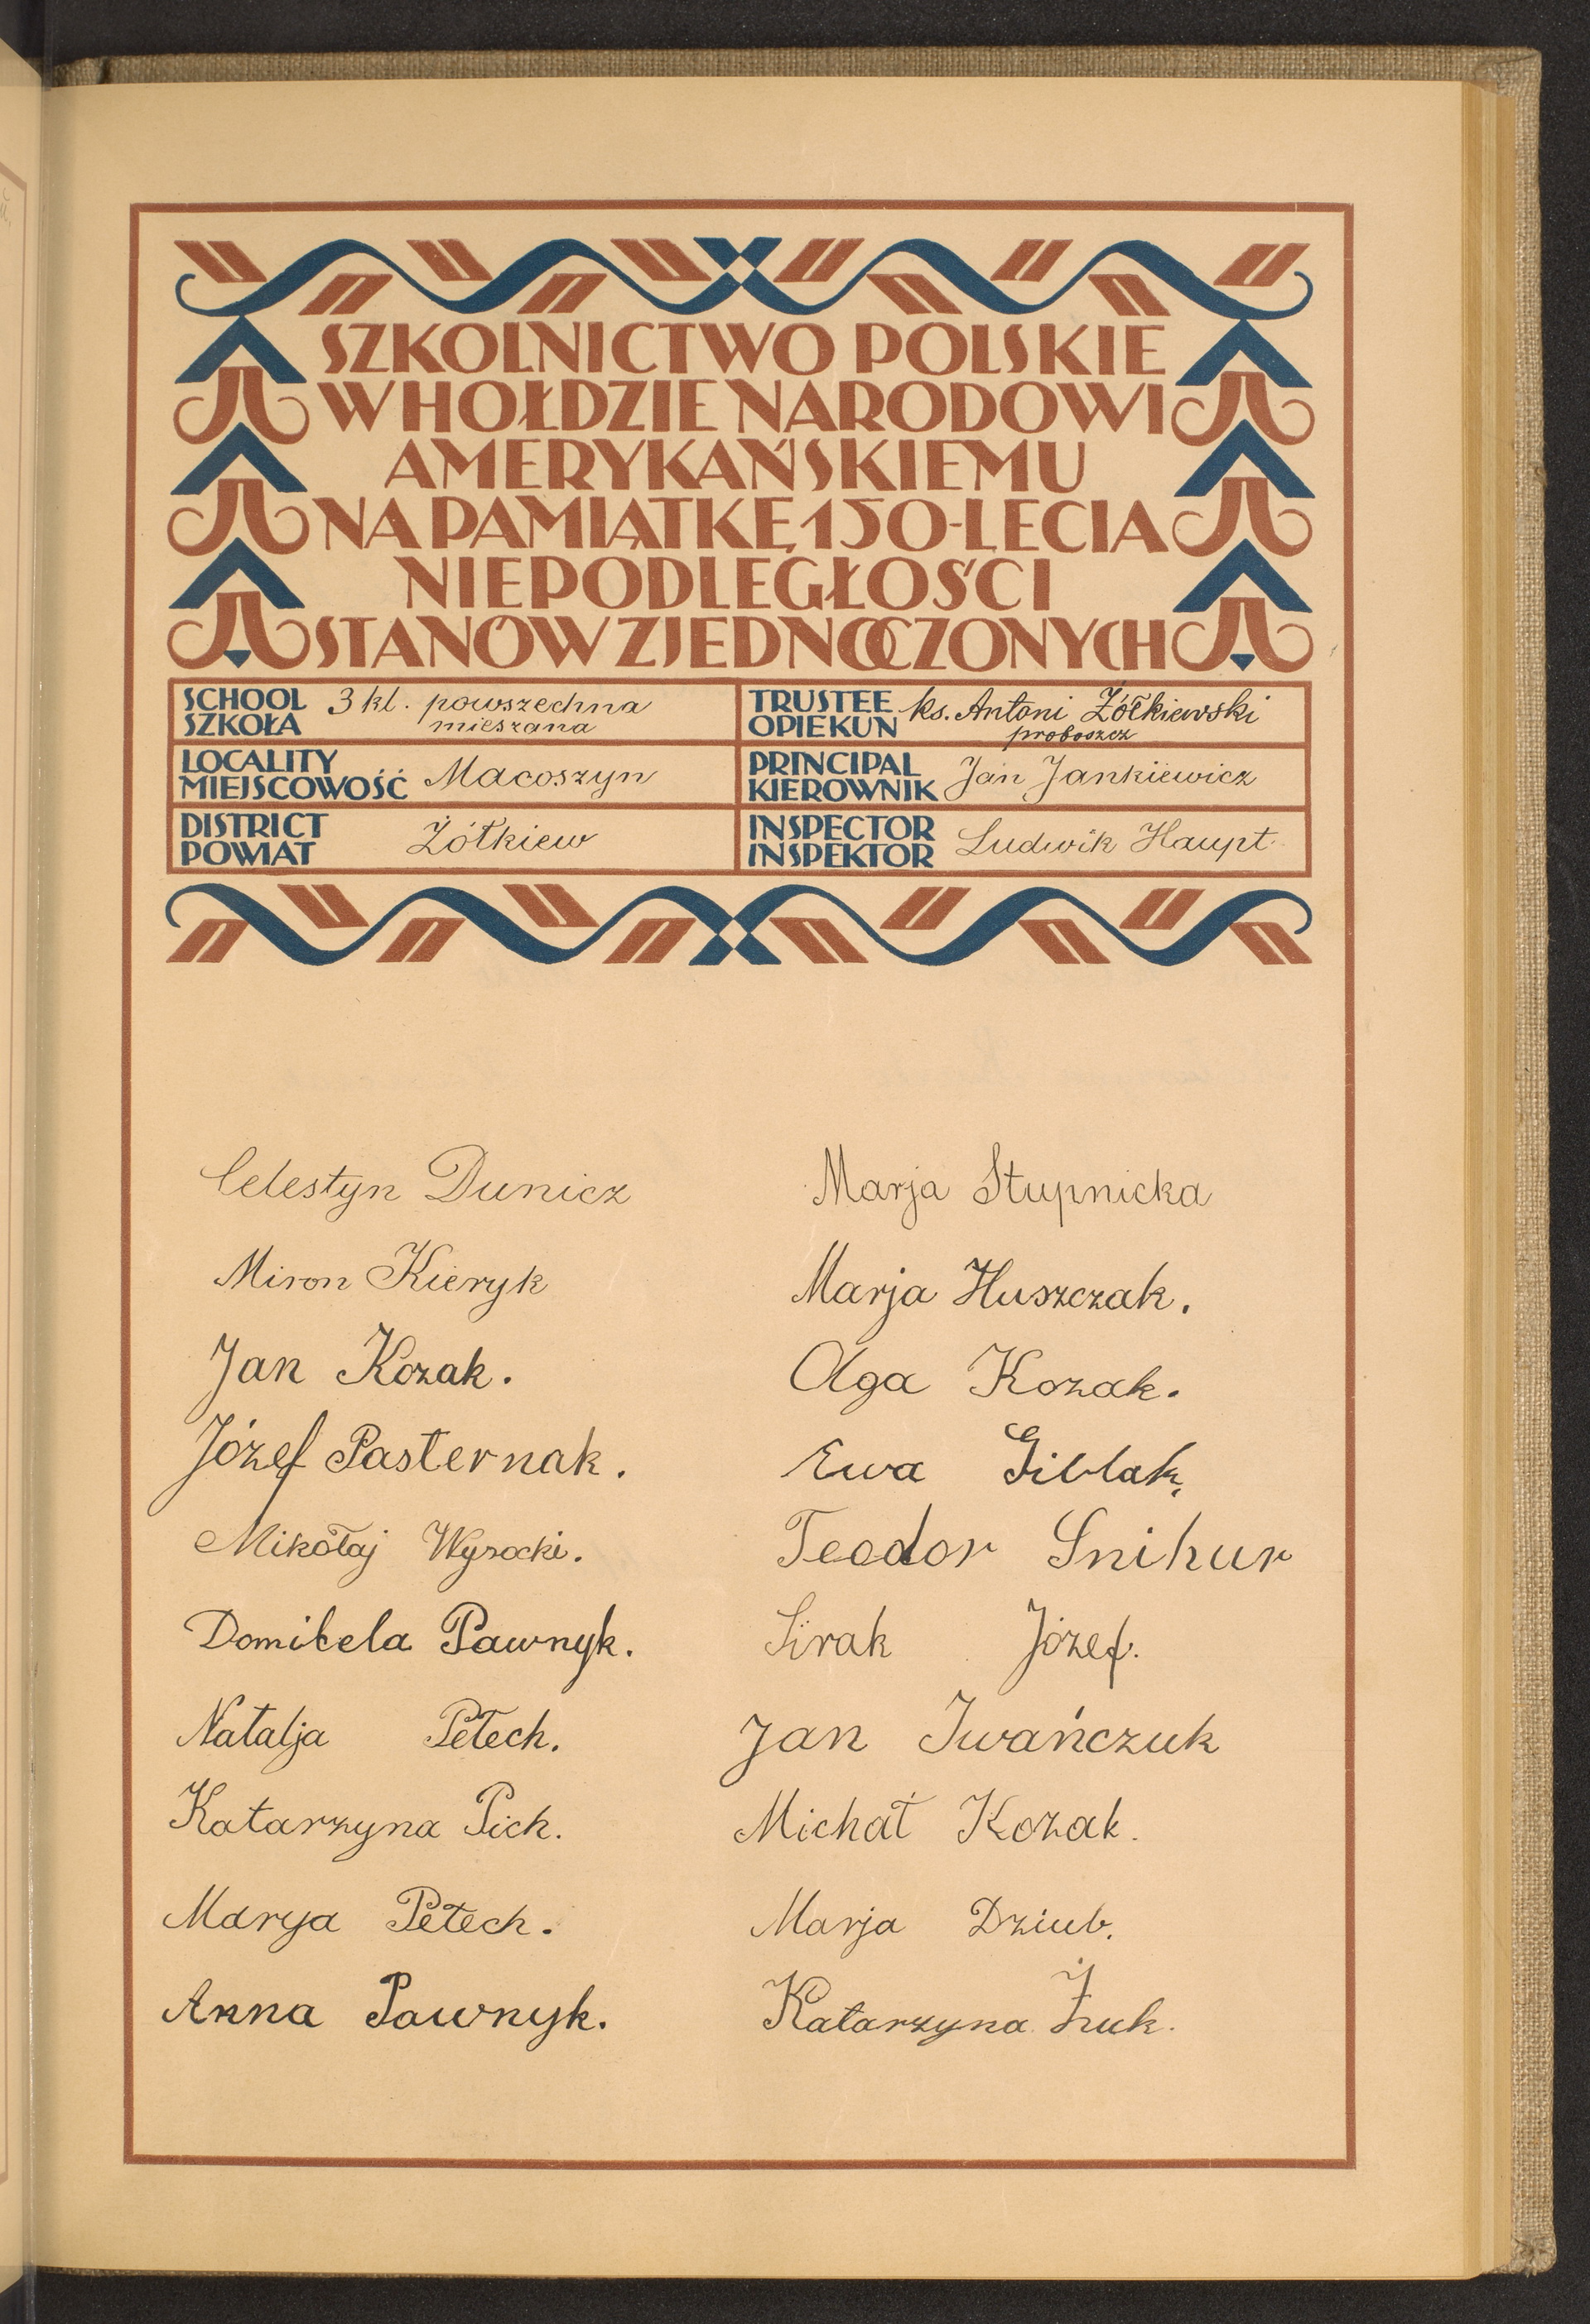 SZKOLNICTWO POLSKIE
W HOŁDZIE NARODOWI
AMERYKAŃSKIEMU
NA PAMIĄTKĘ 150-LECIA
NIEPODLEGŁOŚCI
STANÓW ZJEDNOCZONYCH
SCHOOL
SZKOŁA
3 kl. powszechna
mieszana
TRUSTEE
OPIEKUN
ks. Antoni Żółkiewski
proboszcz
LOCALITY
MIEJSCOWOŚĆ
Macoszyn
PRINCIPAL
KIEROWNIK
Jan Jankiewicz
DISTRICT
POWIAT
Żółkiew
INSPECTOR
INSPEKTOR
Ludwik Haupt
Celestyn Dunicz
Miron Kieryk
Jan Kozak.
Józef Pasternak.
Mikołaj Wysocki.
Domicela Pawnyk.
Natalja Petech.
Katarzyna Pich.
Marya Petech.
Anna Pawnyk.
Marja Stupnicka
Marja Huszczak.
Olga Kozak.
Ewa Giblak.
Teodor Snihur
Sirak Józef.
Jan Iwańczuk
Michał Kozak.
Marja Dziub.
Katarzyna Żuk.